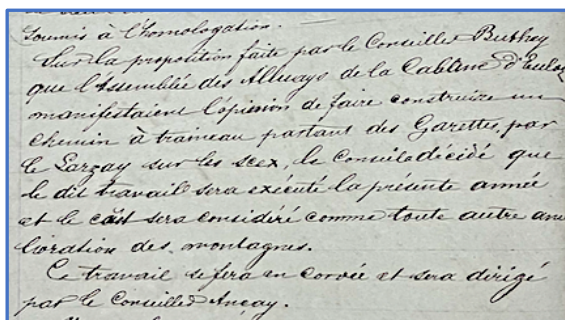 soumis à l'homologation.
Sur la proposition faite par le Conseiller Buthey
que l'Assemblée des Alluays de la Cabtine d'Euloz
manifestaient l'opinion de faire construire un
chemin à traineau partant des Garettes, par
le Larzay sur les scex, le Conseil a décidé que
le dit travail sera exécuté la présente année
et le coût sera considéré comme toute autre amé
lioration des montagnes.
Ce travail se fera en corvée et sera dirigé
par le Conseiller Ançay.